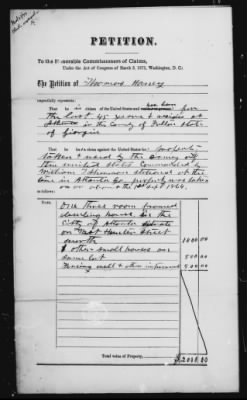 PETITION.
To the Honorable Commissioners of Claims,
Under the Act of Congress of March 3, 1871, Washington, D. C.
The Petition of Thomas Haney
respectfully represents:
That he is citizen of the United States and has been for
the last 45 years and resides at
Atlanta in the County of Fulton State
of Georgia
That he has a claim against the United States for property
taken and used by the army of
the united states Commanded by
William T Sherman stationed at the
time in Atlanta Ga
on or about the 1st Sept 1864.
One three room framed
dwelling house in the
City of Atlanta situate
on West Hunter Street
worth 1000.00
2 other small houses on
same lot 500.00
well & other 500.00
Total value of Property, $2000.00